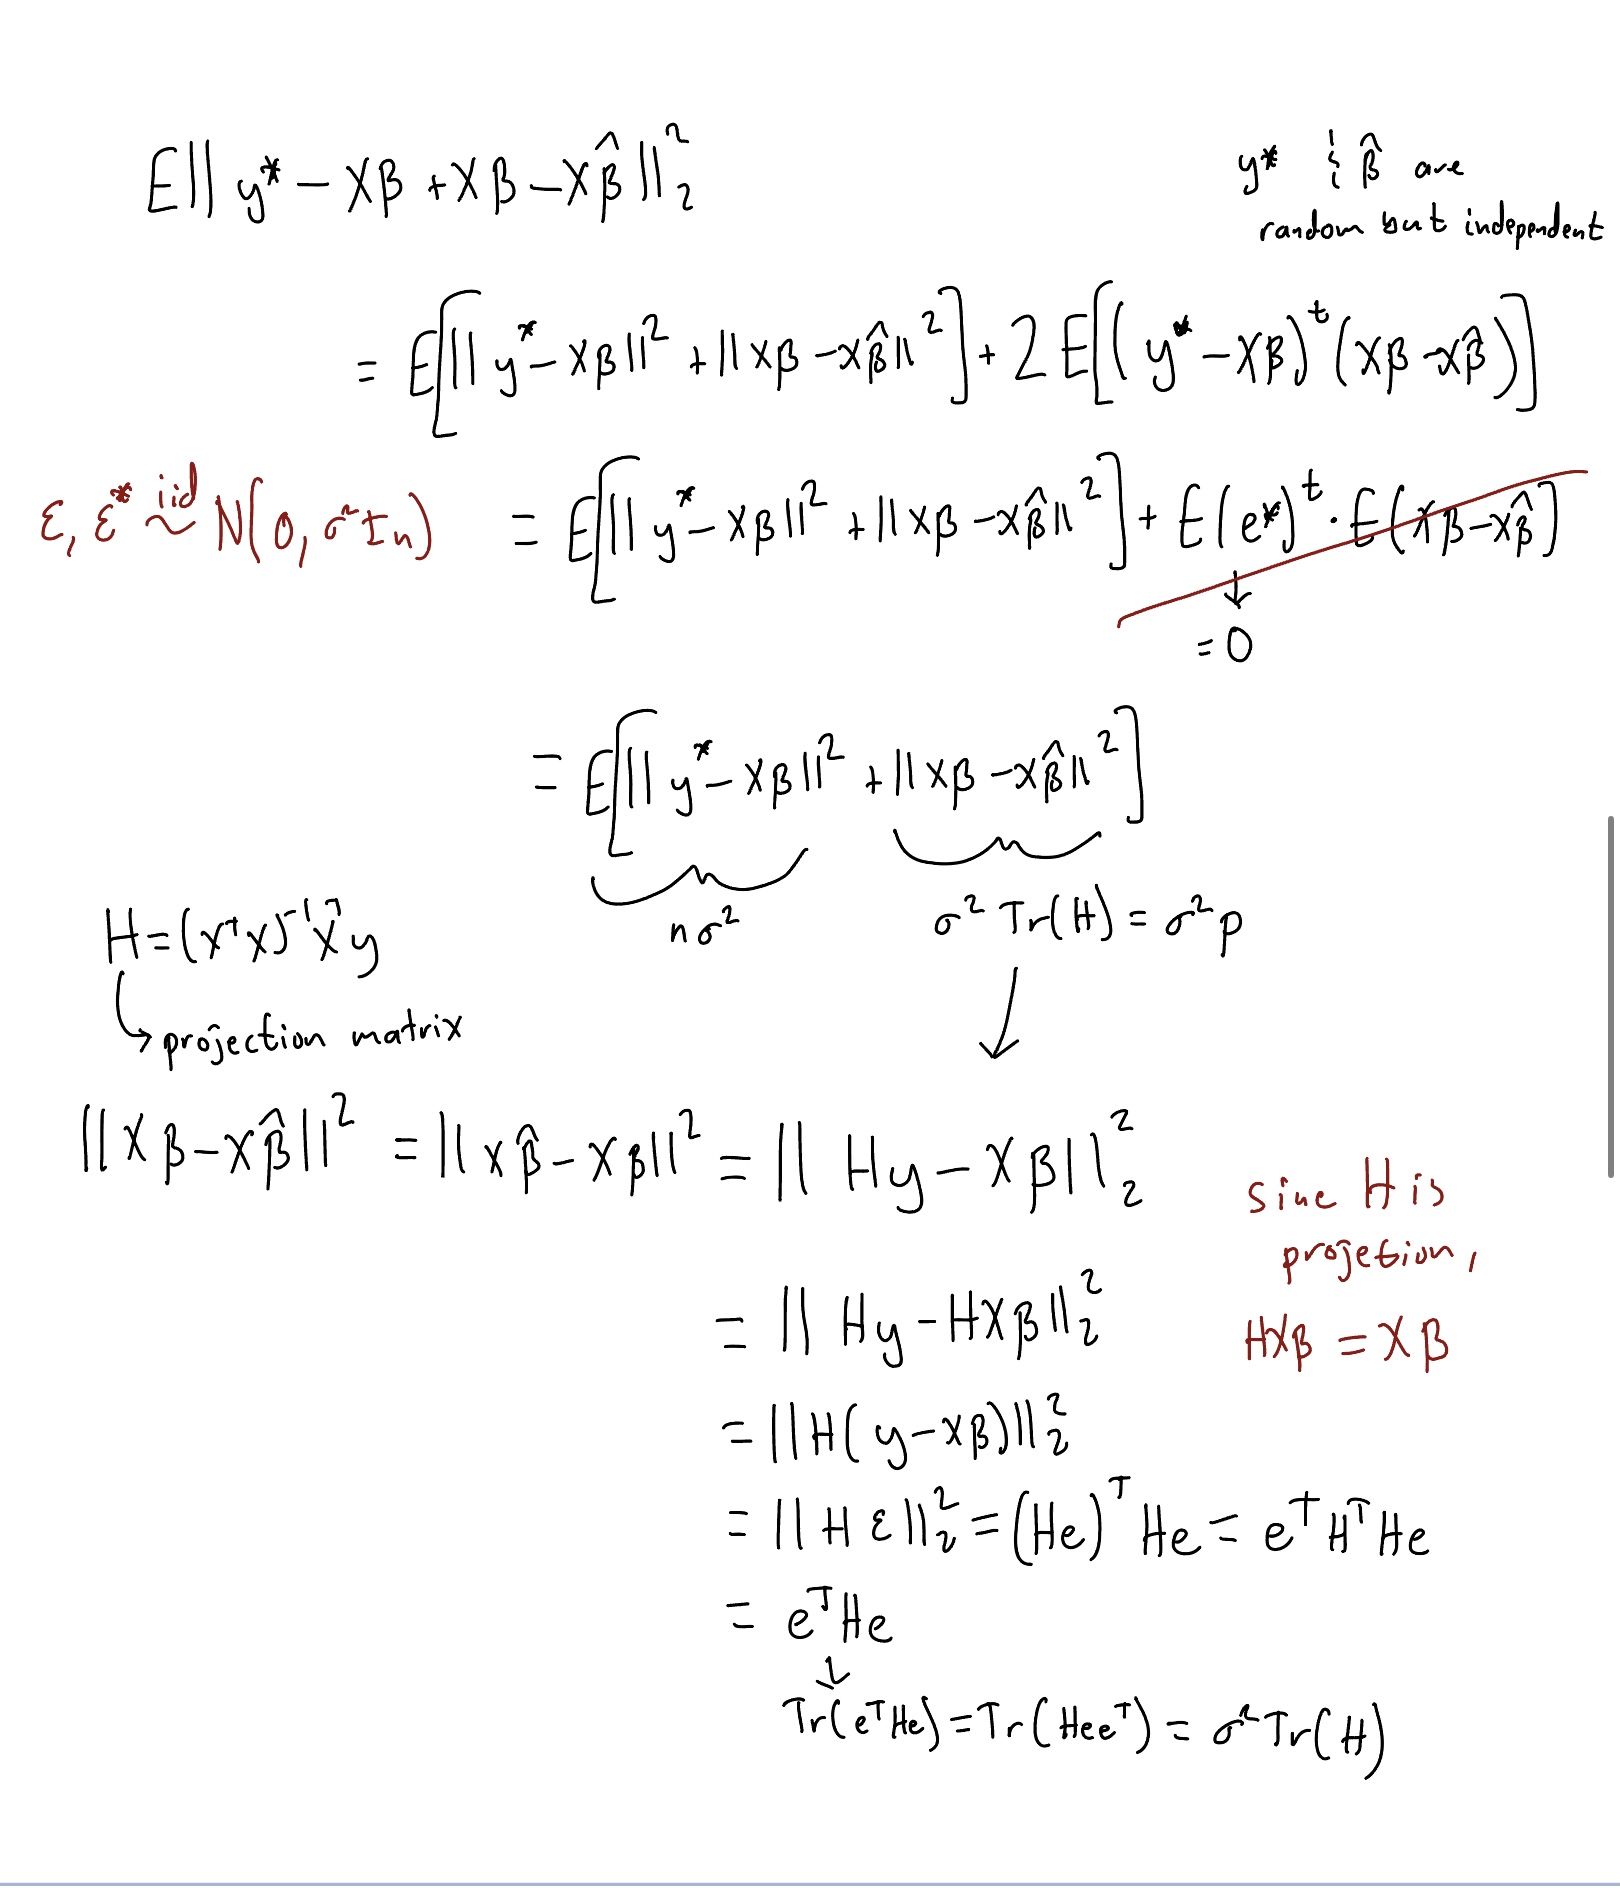 E|| y* − Xβ + Xβ − Xβ̂ ||₂²
y* & β̂ are
random but independent
= E[|| y* − Xβ ||² + || Xβ − Xβ̂ ||²] + 2 E[( y* − Xβ)ᵗ (Xβ − Xβ̂)]
ε, ε* iid ~ N(0, σ²Iₙ)
= E[|| y* − Xβ ||² + || Xβ − Xβ̂ ||²] + E(e*)ᵗ · E(Xβ − Xβ̂)]
↓
= 0
= E[|| y* − Xβ ||² + || Xβ − Xβ̂ ||²]
nσ²
σ² Tr(H) = σ² p
H = (XᵀX)⁻¹Xᵀy
↳ projection matrix
|| Xβ − Xβ̂ ||² = || Xβ̂ − Xβ ||² = || Hy − Xβ ||₂²
sine H is
projetion,
HXβ = Xβ
= || Hy − HXβ ||₂²
= || H( y − Xβ) ||₂²
= || H ε ||₂² = (He)ᵀ He = eᵀHᵀHe
= eᵀHe
↓
Tr(eᵀHe) = Tr(Heeᵀ) = σ² Tr(H)